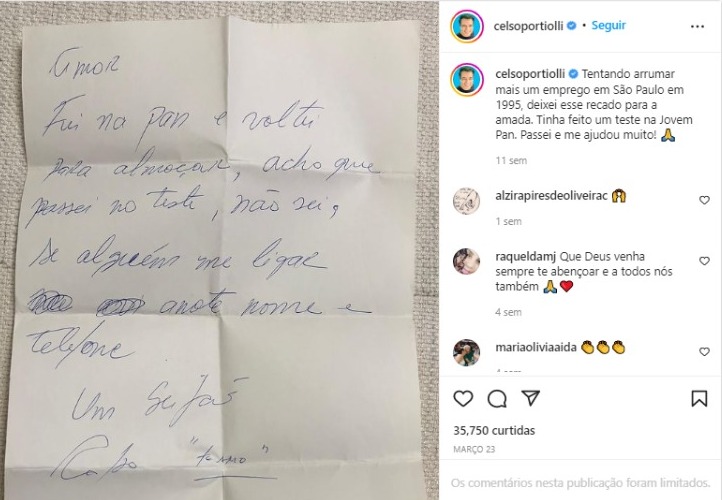 Amor
Fui na pan e voltei
para almoçar, acho que
passei no teste, não sei,
se alguém me ligar
anote nome e
telefone
Um Beijão
"te amo"
celsoportiolli • Seguir
celsoportiolli Tentando arrumar
mais um emprego em São Paulo em
1995, deixei esse recado para a
amada. Tinha feito um teste na Jovem
Pan. Passei e me ajudou muito! 🙏
11 sem
alzirapiresdeoliveirac 🙌
1 sem
raqueldamj Que Deus venha
sempre te abençoar e a todos nós
também 🙏❤️
4 sem
mariaoliviaaida 👏👏👏
4 sem
35,750 curtidas
MARÇO 23
Os comentários nesta publicação foram limitados.